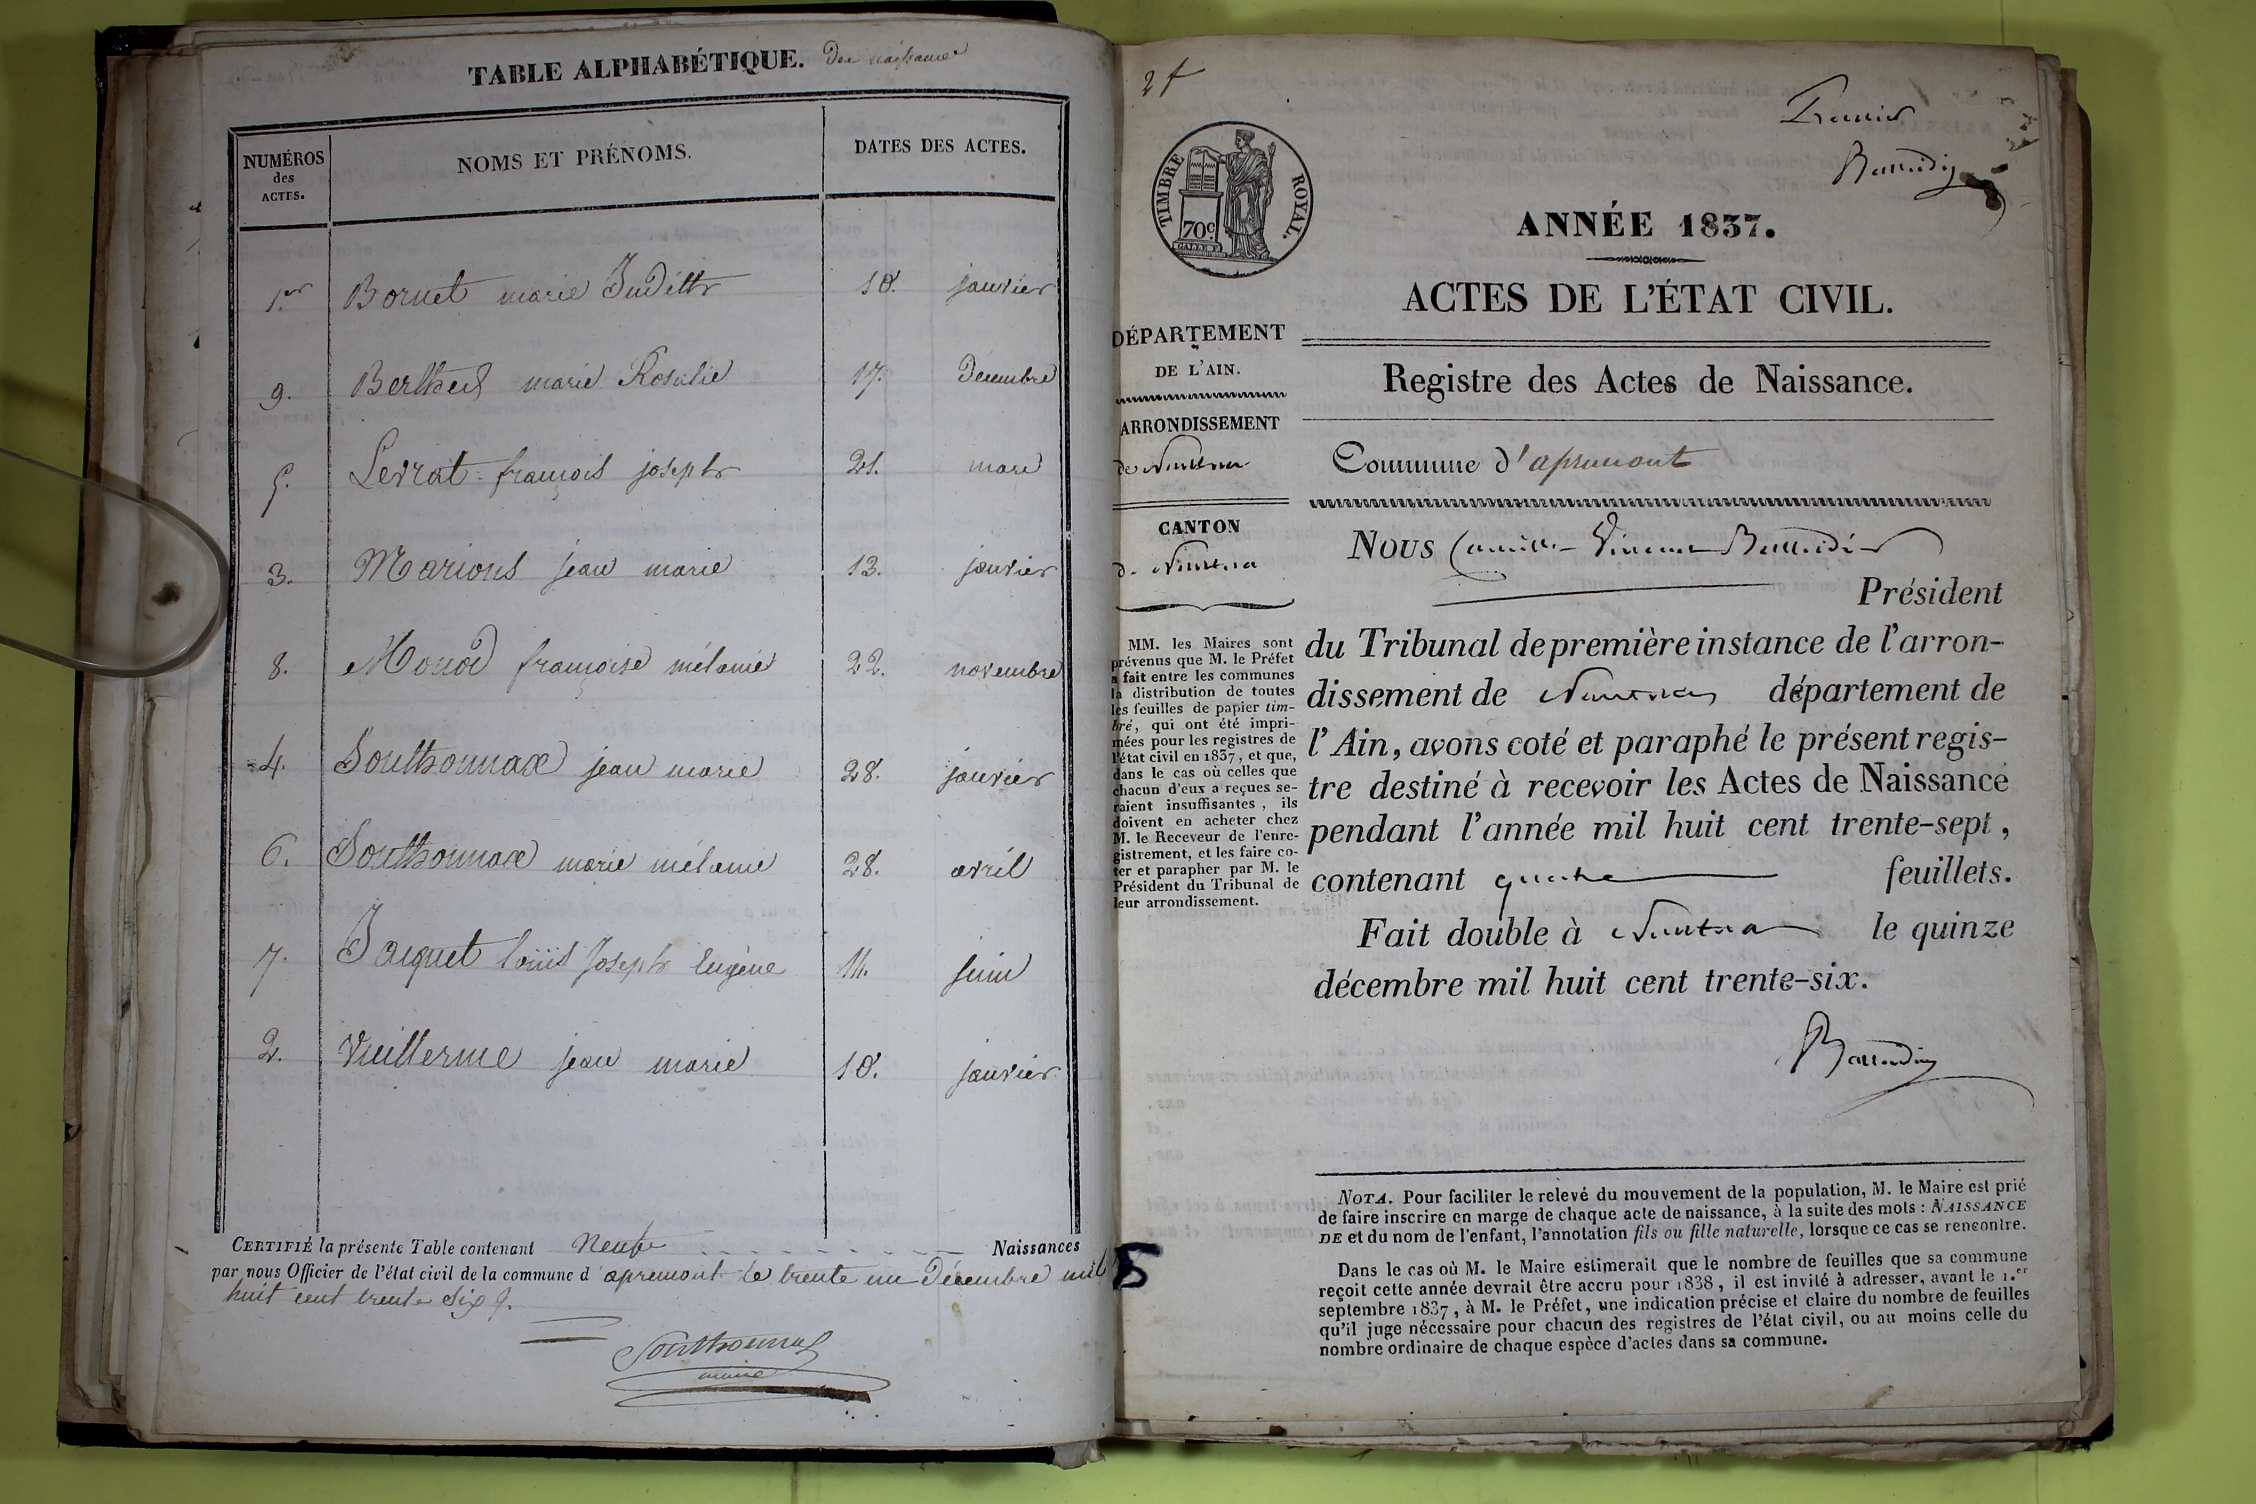 TABLE ALPHABÉTIQUE. Des naissances
NUMÉROS des ACTES. NOMS ET PRÉNOMS. DATES DES ACTES.
1.er Bornet marie Judith 10. janvier
9. Berthet marie Rosalie 17. Décembre
5. Levrat françois joseph 21. mars
3. Marions jean marie 13. janvier
8. Monod françoise mélanie 22. novembre
4. Southonnax jean marie 28. janvier
6. Southonnax marie mélanie 28. avril
7. Jacquet louis Joseph Eugène 11. juin
2. Vuillerme jean marie 10. janvier
CERTIFIÉ la présente Table contenant Neuf Naissances
par nous Officier de l'état civil de la commune d'apremont le trente un Décembre mil
huit cent trente six
Southonnax
maire
Premier
TIMBRE ROYAL.
70c.
ANNÉE 1837.
ACTES DE L'ÉTAT CIVIL.
Registre des Actes de Naissance.
Commune d'apremont
DÉPARTEMENT
DE L'AIN.
ARRONDISSEMENT
de Nantua
CANTON
de Nantua
MM. les Maires sont
prévenus que M. le Préfet
a fait entre les communes
la distribution de toutes
les feuilles de papier tim-
bré, qui ont été impri-
mées pour les registres de
l'état civil en 1837, et que,
dans le cas où celles que
chacun d'eux a reçues se-
raient insuffisantes, ils
doivent en acheter chez
M. le Receveur de l'enre-
gistrement, et les faire co-
ter et parapher par M. le
Président du Tribunal de
leur arrondissement.
Nous Camille Vincent
Président
du Tribunal de première instance de l'arron-
dissement de Nantua département de
l'Ain, avons coté et paraphé le présent regis-
tre destiné à recevoir les Actes de Naissance
pendant l'année mil huit cent trente-sept,
contenant quatre feuillets.
Fait double à Nantua le quinze
décembre mil huit cent trente-six.
NOTA. Pour faciliter le relevé du mouvement de la population, M. le Maire est prié
de faire inscrire en marge de chaque acte de naissance, à la suite des mots : NAISSANCE
DE et du nom de l'enfant, l'annotation fils ou fille naturelle, lorsque ce cas se rencontre.
Dans le cas où M. le Maire estimerait que le nombre de feuilles que sa commune
reçoit cette année devrait être accru pour 1838, il est invité à adresser, avant le 1.er
septembre 1837, à M. le Préfet, une indication précise et claire du nombre de feuilles
qu'il juge nécessaire pour chacun des registres de l'état civil, ou au moins celle du
nombre ordinaire de chaque espèce d'actes dans sa commune.